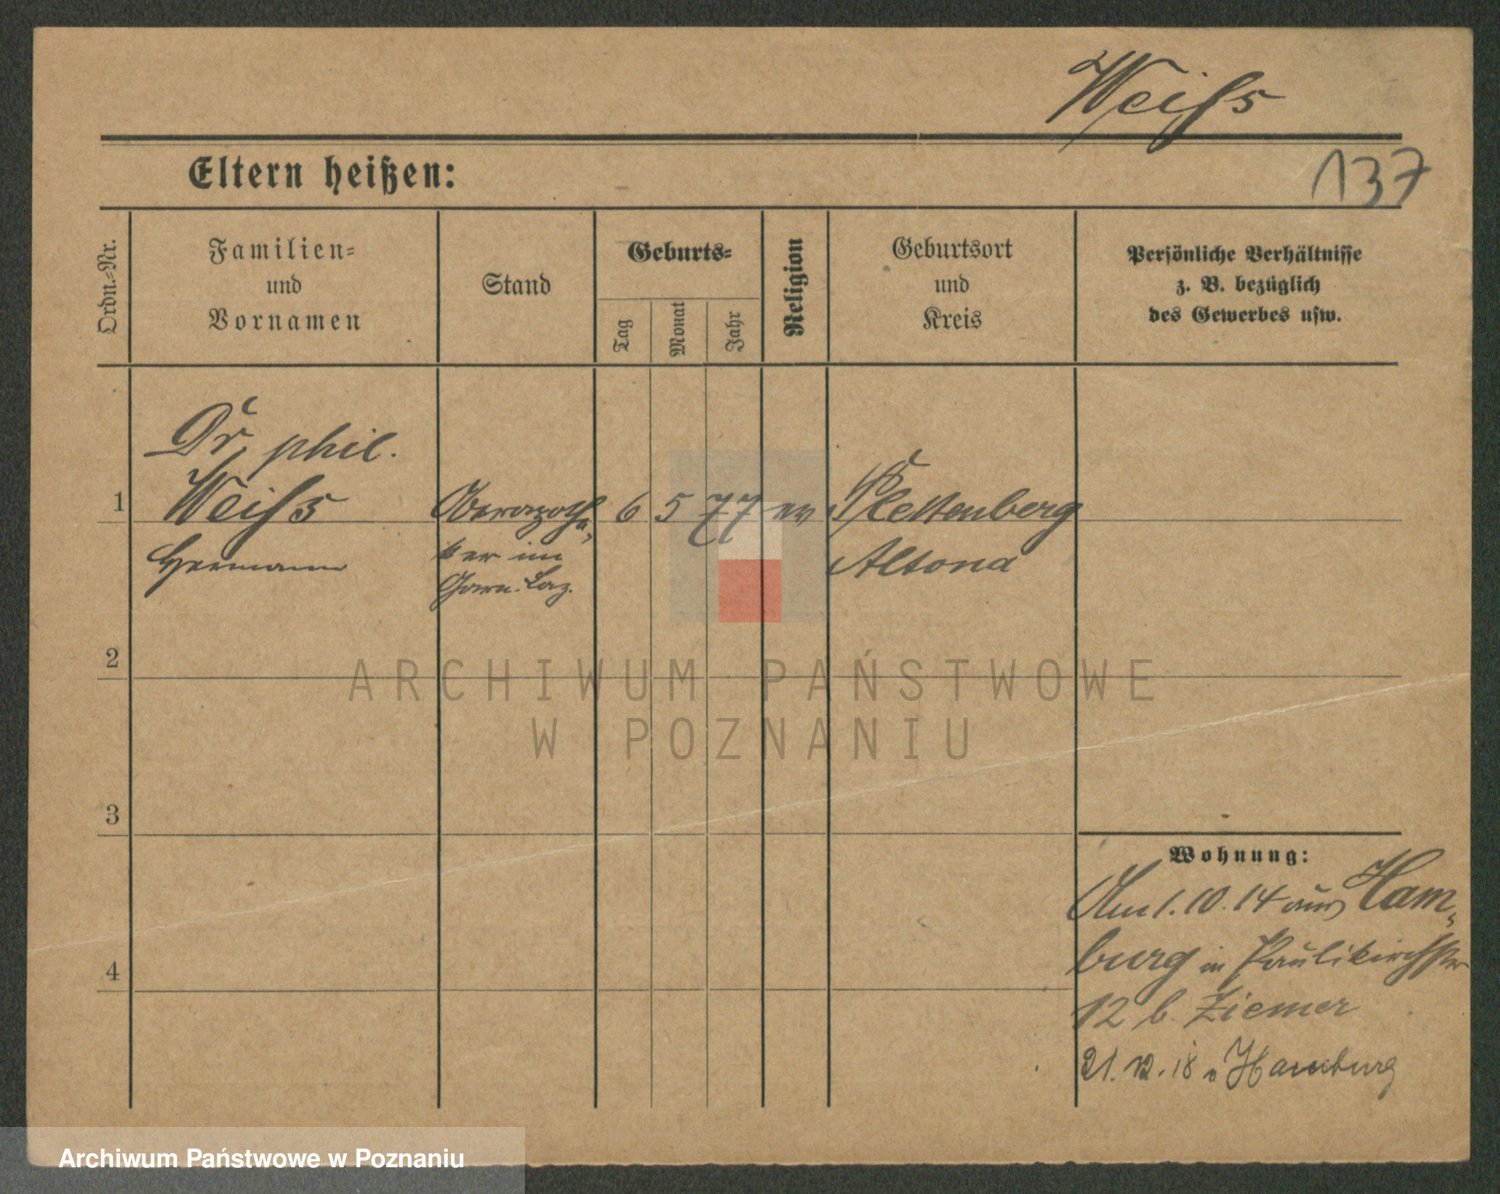 Weiſs
Eltern heißen:
137
Ordn.-Nr.
Familien=
und
Vornamen
Stand
Geburts=
Tag
Monat
Jahr
Religion
Geburtsort
und
Kreis
Persönliche Verhältnisse
z. B. bezüglich
des Gewerbes usw.
Dr. phil.
1 Weiſs Oberapothe- 6 5 77 ev Plettenberg
Hermann ker im Altona
Garn. Laz.
2
3
4
Wohnung:
Am 1. 10. 14 aus Ham-
burg in Paulikirchstr
12 b. Ziemer
21. 12. 18 n Hamburg
ARCHIWUM PAŃSTWOWE
W POZNANIU
Archiwum Państwowe w Poznaniu